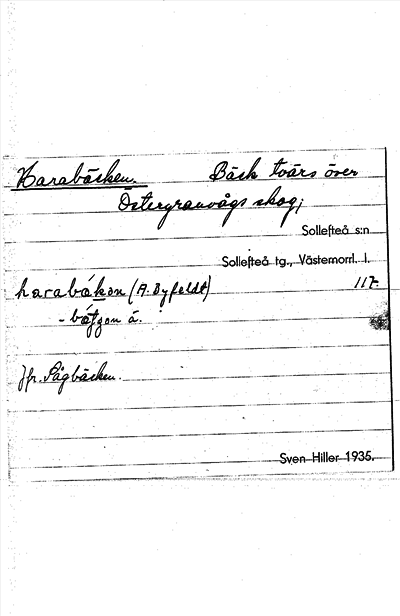 Harabäcken. Bäck tvärs över
Östergranvågs skog;
Sollefteå s:n
Sollefteå tg., Västernorrl. l.
harabäkən (A. Byfeldt) 117.
- bäʃʃən ä.
Jfr. Sågbäcken.
Sven Hiller 1935.